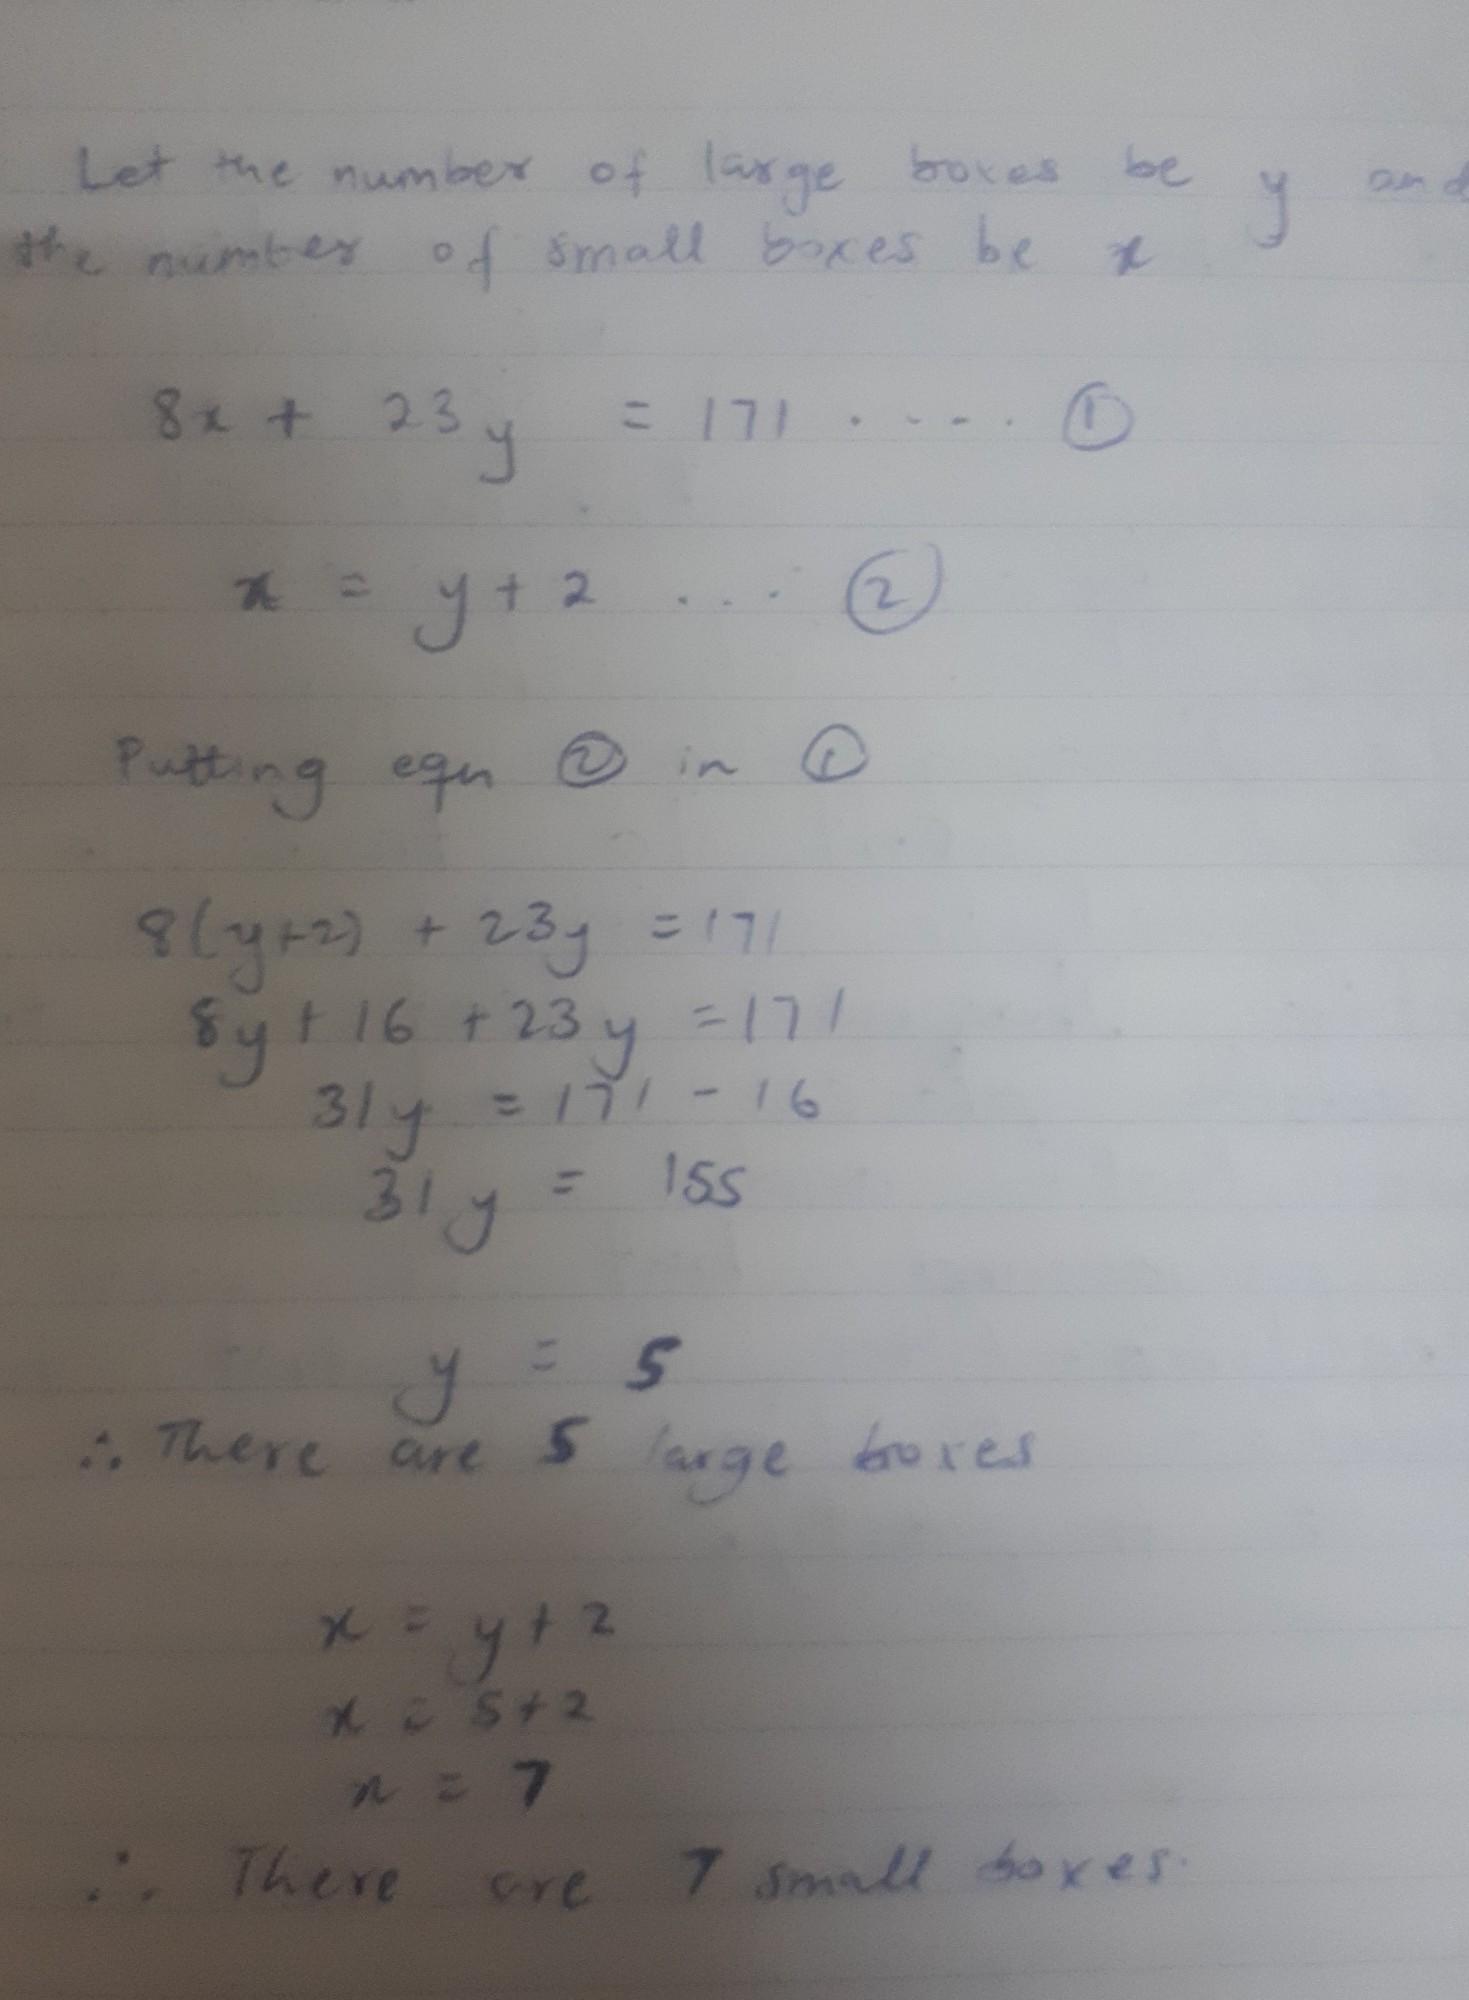 Let the number of large boxes be y and
the number of small boxes be x
8x + 23y = 171 ..... ①
x = y + 2 .... ②
Putting eqn ② in ①
8(y+2) + 23y = 171
8y + 16 + 23y = 171
31y = 171 - 16
31y = 155
y = 5
∴ There are 5 large boxes
x = y + 2
x = 5 + 2
x = 7
∴ There are 7 small boxes.